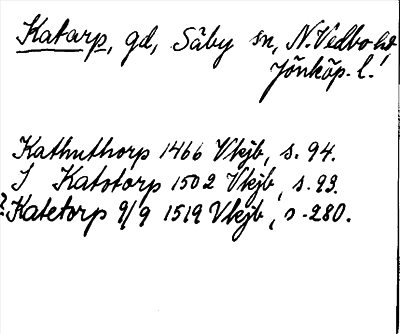 Katarp, gd, Säby sn, N. Vedbo hd
Jönköp. l.
Kathuthorp 1466 Vkjb, s. 94.
I Katstorp 1502 Vkjb, s. 93.
? Katetorp 9/9 1519 Vkjb, s. 280.